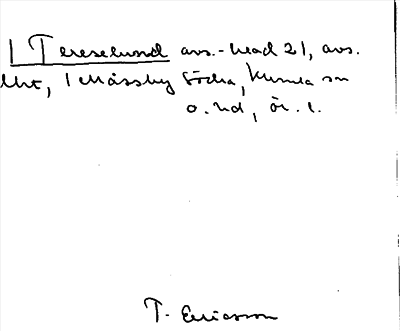 1 Tereselund avs.-head 21, avs.
lht, 1 Mässby Södra, Kumla sn
o. hd, ör. l.
T. Ericsson